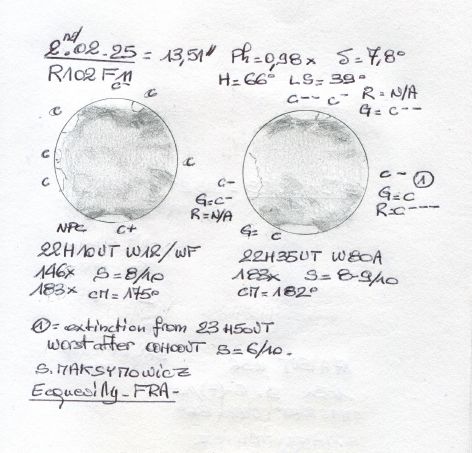 2.nd 02.25 = 13,51" Ph=0,98x δ=7,8°
R102 F11 H=66° LS=39°
C- C C-- C- R=N/A
G=C---
C
C C
C C- C- ①
G=C- G=C
R=N/A R=C---
NPC C+ G= C
22H10UT W12/WF 22H35UT W80A
146x S=8/10 183x S=8-9/10
183x CM=175° CM=182°
①= extinction from 23H50UT
worst after 00H00UT S=6/10.
S.MAKSYMOWICZ
Ecquevilly-FRA-